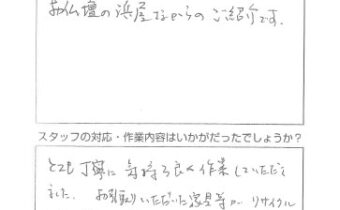 お仏壇の浜屋さまからのご紹介です。
スタッフの対応・作業内容はいかがだったでしょうか?
とても丁寧に気持ち良く作業していただき
ました。お引取りいただいた寝具等が リサイクル